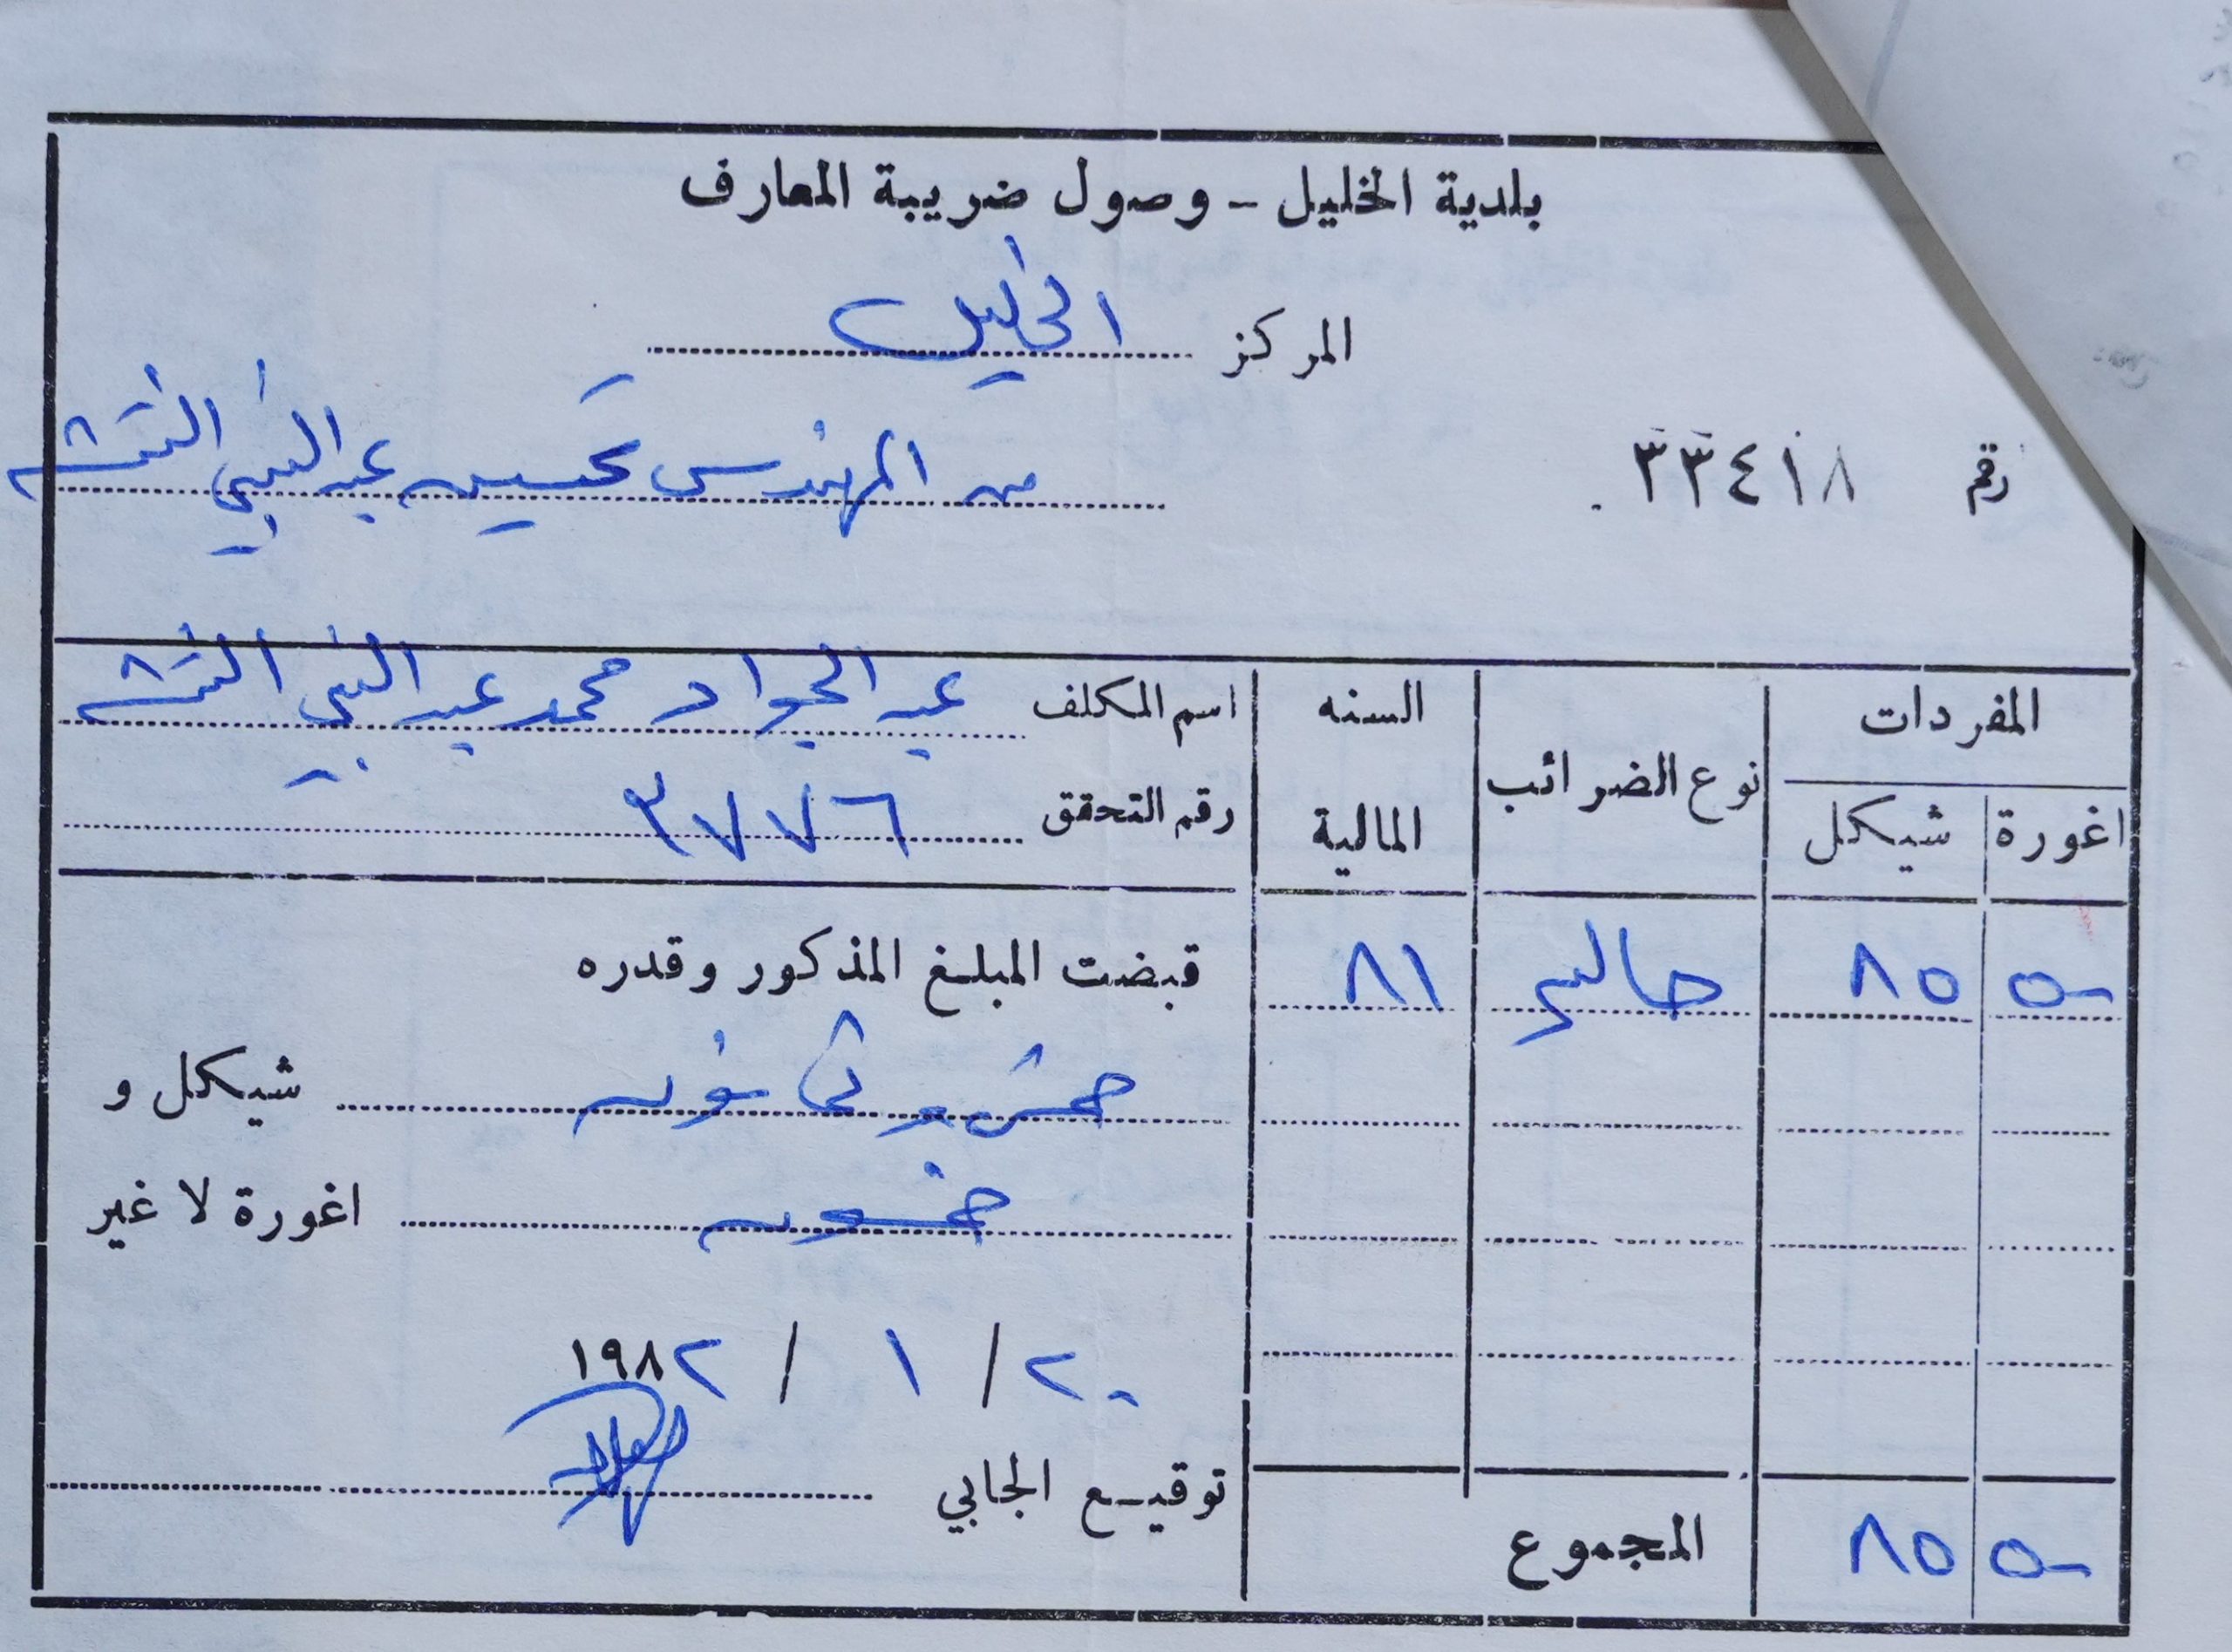 بلدية الخليل - وصول ضريبة المعارف
المركز الخليل
رقم ٣٣٤١٨
من المهندس تحسين عبد النبي النتشه
المفردات
اغورة شيكل
نوع الضرائب
السنه المالية
اسم المكلف عبد الجواد محمد عبد النبي النتشه
رقم التحقق ٣٧٧٦
٥٠ ٨٥ حالي ٨١
قبضت المبلغ المذكور وقدره
خمس وثمانون شيكل و
خمسون اغورة لا غير
٢٠ / ١ / ١٩٨٢
توقيع الجابي
المجموع
٥٠ ٨٥